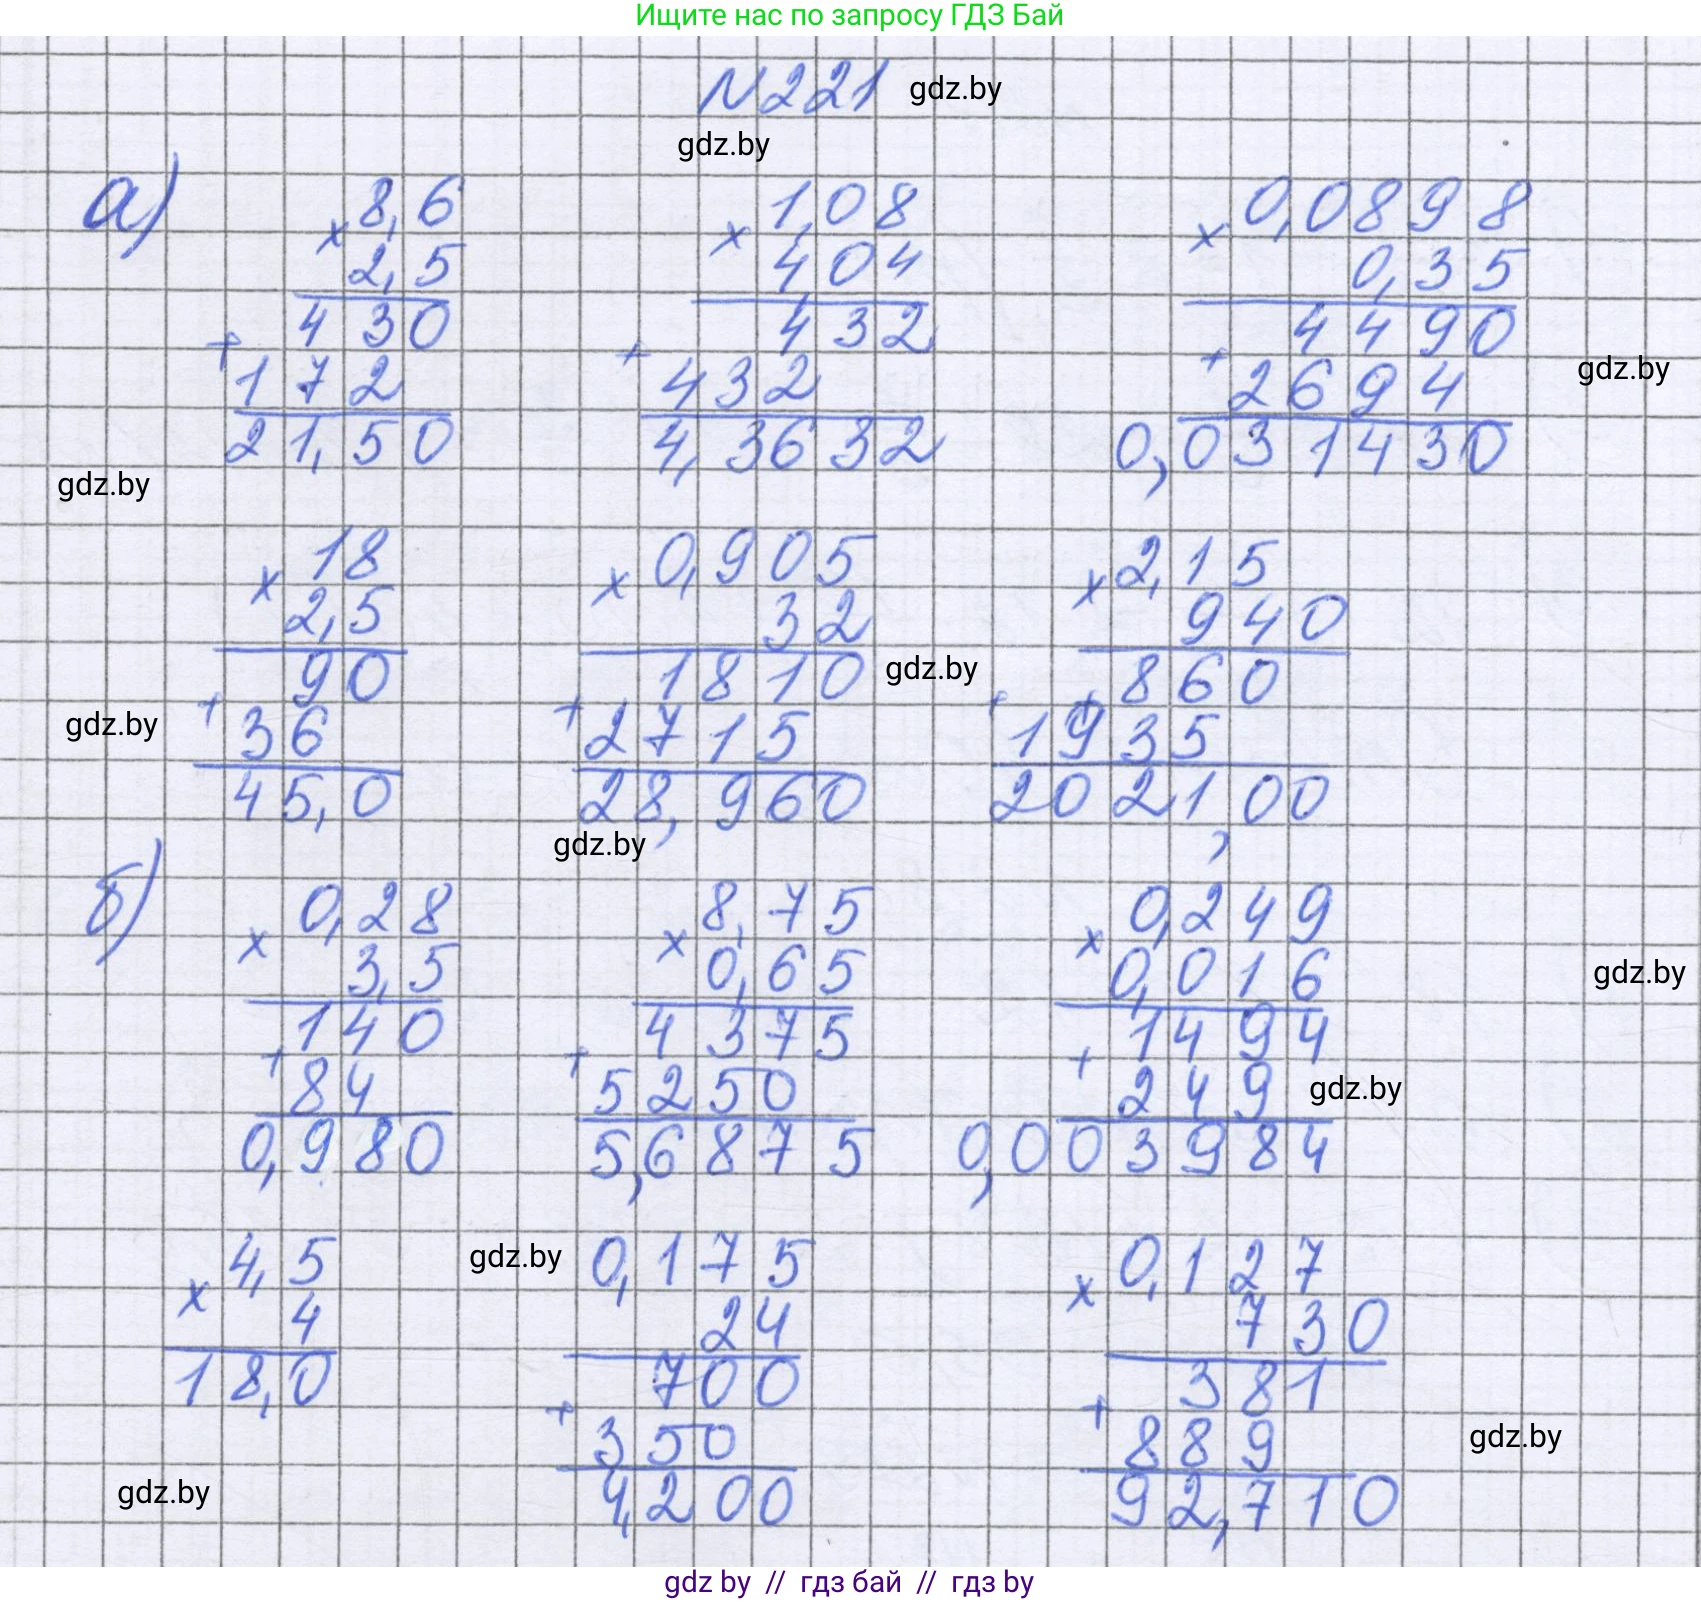 Ищите нас по запросу ГДЗ Бай
N221 gdz.by
gdz.by
а)
8,6
× 2,5
430
+ 172
21,50
1,08
× 4,04
432
+ 432
4,3632
0,0898
× 0,35
4490
+ 2694
0,031430
gdz.by
gdz.by
18
× 2,5
90
+ 36
45,0
0,905
× 32
1810
+ 2715
28,960
gdz.by
2,15
× 940
860
+ 1935
2021,00
gdz.by
gdz.by
б)
0,28
× 3,5
140
+ 84
0,980
8,75
× 0,65
4375
+ 5250
5,6875
0,249
× 0,016
1494
+ 249
0,003984
gdz.by
gdz.by
4,5
× 4
18,0
gdz.by
0,175
24
700
+ 350
4,200
0,127
× 730
381
+ 889
92,710
gdz.by
gdz.by
gdz by // гдз бай // гдз by